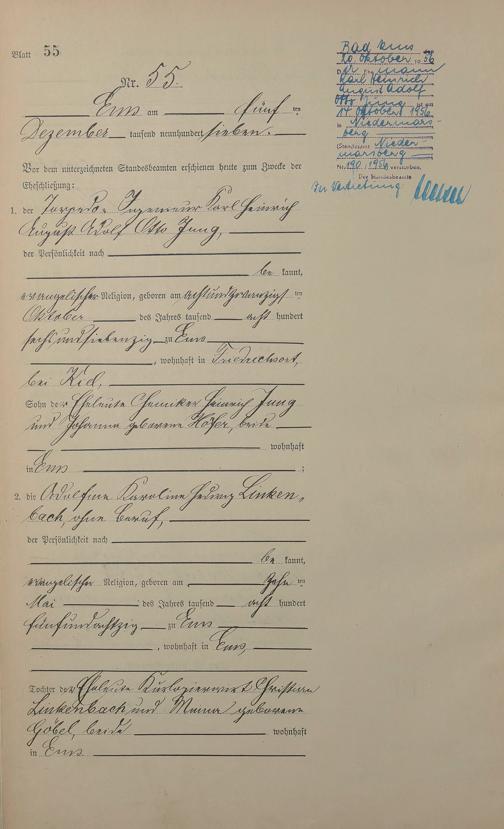 Blatt 55
Nr. 55.
Ems am fünften
Dezember tausend neunhundert sieben.
Vor dem unterzeichneten Standesbeamten erschienen heute zum Zwecke der
Eheschließung:
1. der Torpedo-Ingenieur Karl Heinrich
August Adolf Otto Jung,
der Persönlichkeit nach
bekannt,
evangelischer Religion, geboren am achtundzwanzigsten
Oktober des Jahres tausend acht hundert
sechsundsiebenzig zu Ems
, wohnhaft in Friedrichsort,
bei Kiel,
Sohn der Eheleute Chemiker Heinrich Jung
und Johanna geborene Höfer, beide
wohnhaft
in Ems ;
2. die Adolfine Karoline Hedwig Linken-
bach, ohne Beruf,
der Persönlichkeit nach
bekannt,
evangelischer Religion, geboren am zehnten
Mai des Jahres tausend acht hundert
fünfundachtzig zu Ems
, wohnhaft in Ems,
Tochter der Eheleute Kurlogierwirt Christian
Linkenbach und Minna geborene
Göbel, beide wohnhaft
in Ems
Bad Ems
20. Oktober 1956
Ehemann
Karl Heinrich
August Adolf
Otto Jung ist am
17. Oktober 1956
in Niedermars-
berg
(Standesamt Nieder-
marsberg
Nr. 190/1956) verstorben.
Der Standesbeamte
In Vertretung